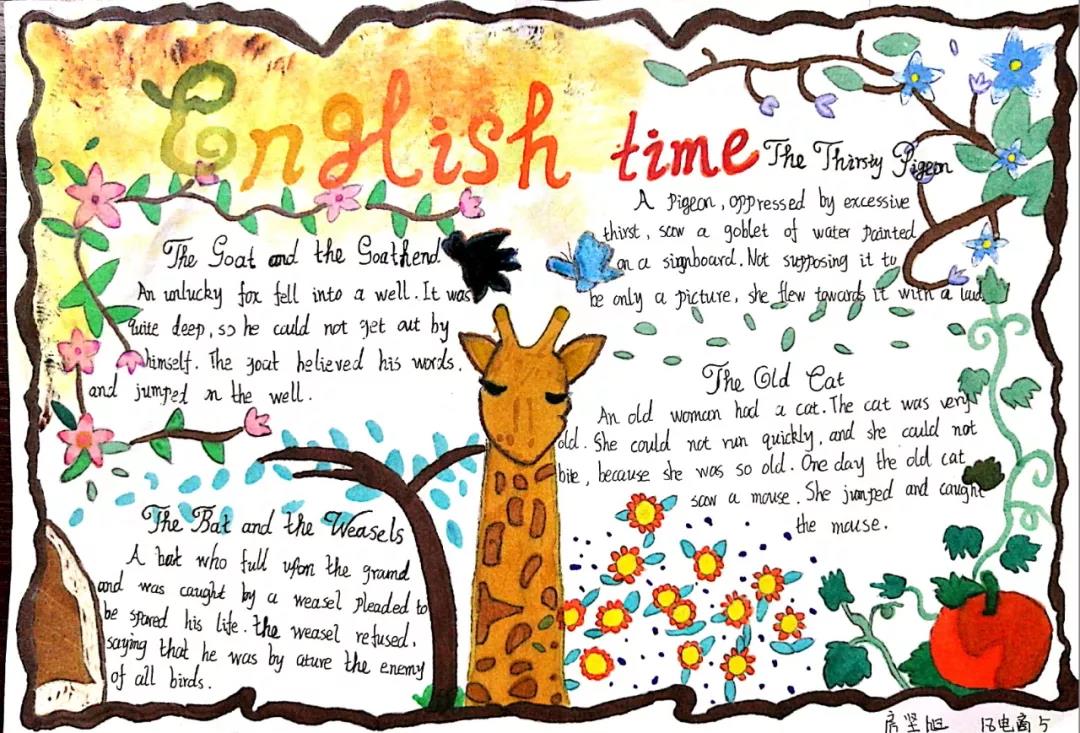 EngHish time
The Goat and the Goathend
An unlucky fox fell into a well. It was
quite deep, so he could not get out by
himself. The goat believed his words.
and jumped in the well.
The Bat and the Weasels
A bat who full upon the graund
and was caught by a weasel pleaded to
be spared his life. the weasel refused,
saying that he was by ature the enemy
of all birds.
The Thirsty Pigeon
A Pigeon, oppressed by excessive
thirst, saw a goblet of water painted
on a signboard. Not supposing it to
be only a picture, she flew towards it with a
The Old Cat
An old woman had a cat. The cat was very
old. She could not run quickly, and she could not
bite, because she was so old. One day the old cat
saw a mouse. She jumped and caught
the mouse.
电商5